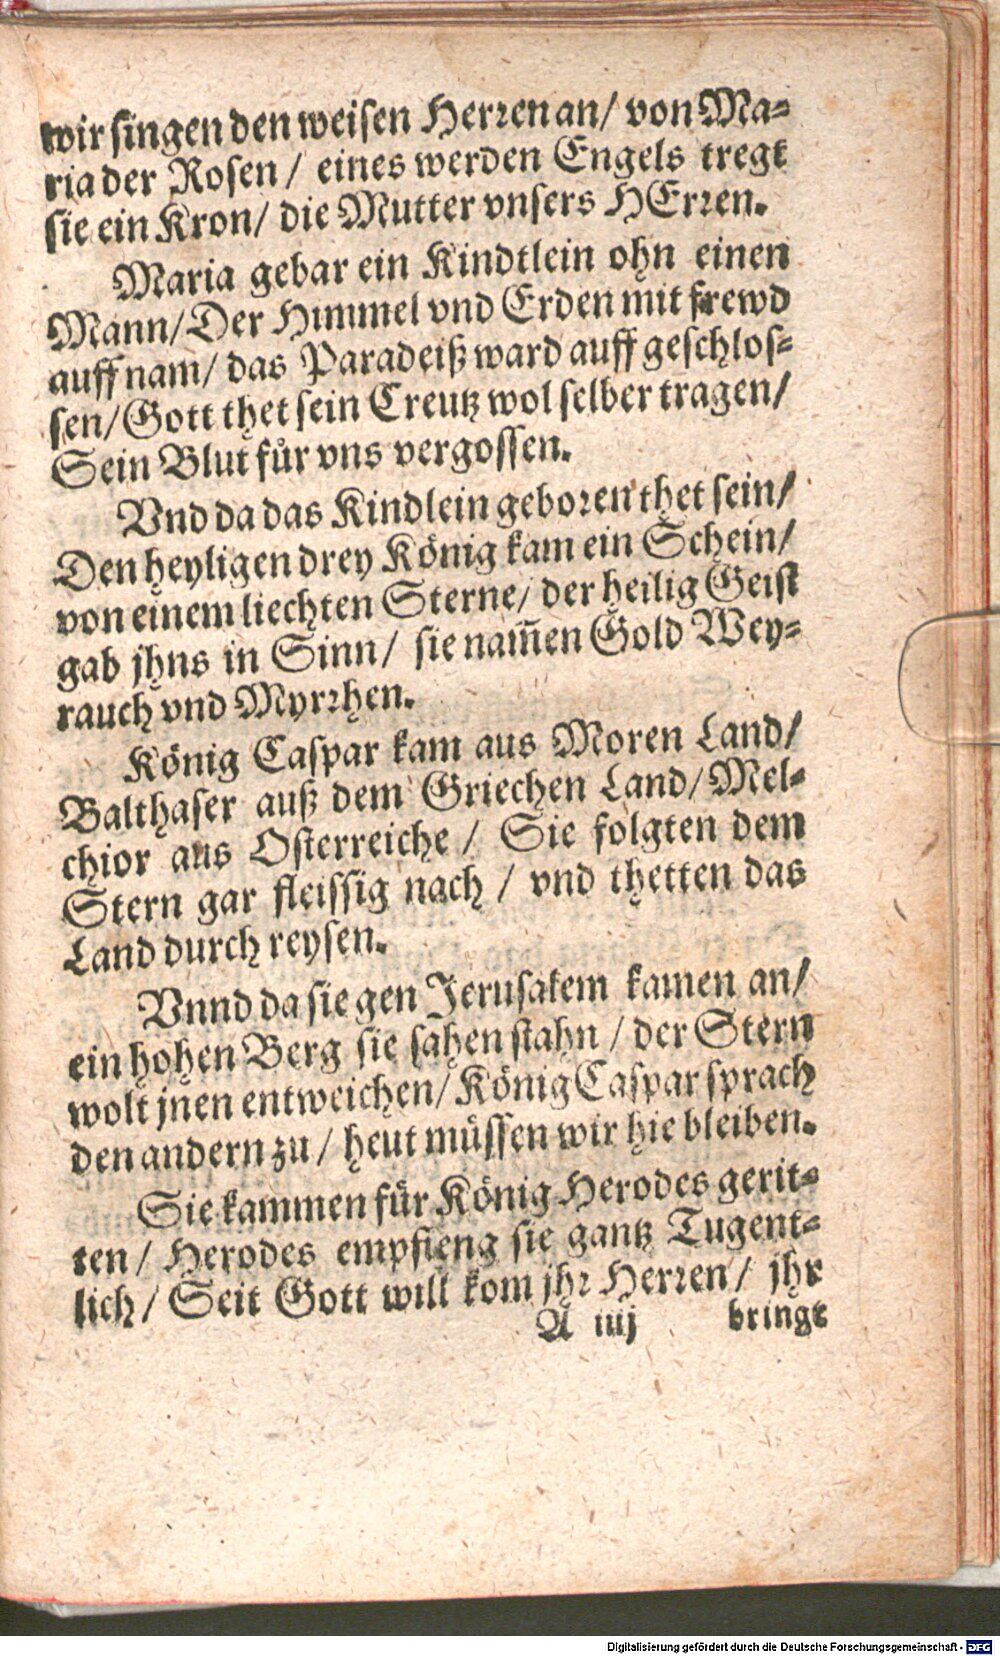 wir singen den weisen Herren an/ von Ma⸗
ria der Rosen / eines werden Engels tregt
sie ein Kron/ die Mutter vnsers HErren.
Maria gebar ein Kindtlein ohn einen
Mann/Der Himmel vnd Erden mit frewd
auff nam/ das Paradeiß ward auff geschlos⸗
sen/Gott thet sein Creutz wol selber tragen/
Sein Blut fuͤr vns vergossen.
Vnd da das Kindlein geboren thet sein/
Den heyligen drey König kam ein Schein/
von einem liechten Sterne/ der heilig Geist
gab jhns in Sinn/ sie nam̄en Gold Wey⸗
rauch vnd Myrrhen.
König Caspar kam aus Moren Land/
Balthaser auß dem Griechen Land/Mel⸗
chior aus Osterreiche / Sie folgten dem
Stern gar fleissig nach / vnd thetten das
Land durch reysen.
Vnnd da sie gen Jerusalem kamen an/
ein hohen Berg sie sahen stahn / der Stern
wolt jnen entweichen/ König Caspar sprach
den andern zu / heut müssen wir hie bleiben.
Sie kammen für König Herodes gerit⸗
ten / Herodes empfieng sie gantz Tugent⸗
lich / Seit Gott will kom jhr Herren / jhr
A iiij bringt
Digitalisierung gefördert durch die Deutsche Forschungsgemeinschaft - DFG